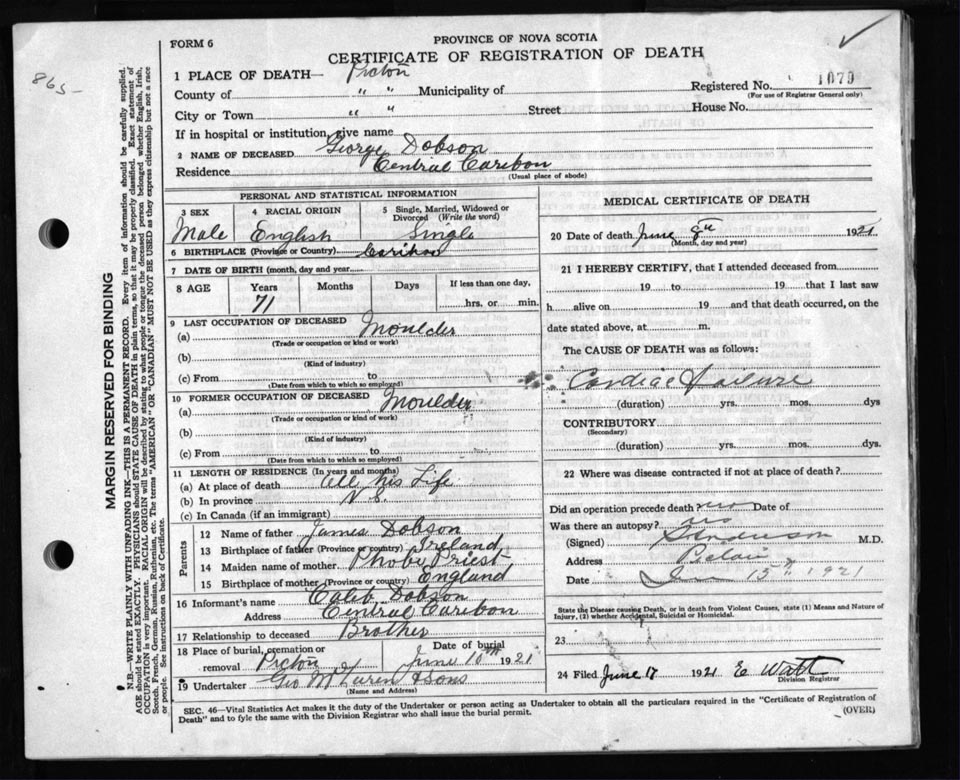 FORM 6
PROVINCE OF NOVA SCOTIA
CERTIFICATE OF REGISTRATION OF DEATH
865-
1 PLACE OF DEATH— Pictou
Registered No. 1079
(For use of Registrar General only)
County of " " Municipality of
City or Town " Street House No.
If in hospital or institution, give name
2 NAME OF DECEASED George Dobson
Residence Central Caribou
(Usual place of abode)
MARGIN RESERVED FOR BINDING
N.B.—WRITE PLAINLY WITH UNFADING INK—THIS IS A PERMANENT RECORD. Every item of information should be carefully supplied.
AGE should be stated EXACTLY. PHYSICIANS should STATE CAUSE OF DEATH in plain terms, so that it may be properly classified. Exact statement of
OCCUPATION is very important. RACIAL ORIGIN will be described by stating to what people or tongue the deceased person belonged whether English, Irish,
Scotch, French, German, Russian, Ruthenian, etc. The terms "AMERICAN" OR "CANADIAN" MUST NOT BE USED as they express citizenship but not a race
or people. See instructions on back of Certificate.
PERSONAL AND STATISTICAL INFORMATION
3 SEX
Male
4 RACIAL ORIGIN
English
5 Single, Married, Widowed or
Divorced (Write the word)
Single
6 BIRTHPLACE (Province or Country) Caribou
7 DATE OF BIRTH (month, day and year)
8 AGE Years Months Days If less than one day,
71 hrs. or min.
9 LAST OCCUPATION OF DECEASED
(a) Moulder
(Trade or occupation or kind or work)
(b)
(Kind of industry)
(c) From to
(Date from which to which so employed)
10 FORMER OCCUPATION OF DECEASED
(a) Moulder
(Trade or occupation or kind of work)
(b)
(Kind of industry)
(c) From to
(Date from which to which so employed)
11 LENGTH OF RESIDENCE (In years and months)
(a) At place of death All his Life
(b) In province N.S.
(c) In Canada (if an immigrant)
Parents
12 Name of father James Dobson
13 Birthplace of father (Province or country) Ireland
14 Maiden name of mother Phoby Priest
15 Birthplace of mother (Province or country) England
16 Informant's name Caleb Dobson
Address Central Caribou
17 Relationship to deceased Brother
18 Place of burial, cremation or
removal Pictou
Date of burial
June 10th 1921
19 Undertaker Geo McLaren & Sons
(Name and Address)
MEDICAL CERTIFICATE OF DEATH
20 Date of death June 8th 1921
(Month, day and year)
21 I HEREBY CERTIFY, that I attended deceased from
19 to 19 that I last saw
h alive on 19 and that death occurred, on the
date stated above, at m.
The CAUSE OF DEATH was as follows:
Cardiac Failure
(duration) yrs. mos. dys
CONTRIBUTORY
(Secondary)
(duration) yrs. mos. dys.
22 Where was disease contracted if not at place of death?
Did an operation precede death? no Date of
Was there an autopsy? no
(Signed) M.D.
Address Pictou
Date June 15th 1921
State the Disease causing Death, or in death from Violent Causes, state (1) Means and Nature of
Injury, (2) whether Accidental, Suicidal or Homicidal.
23
24 Filed June 17 1921 E Watt
Division Registrar
SEC. 46—Vital Statistics Act makes it the duty of the Undertaker or person acting as Undertaker to obtain all the particulars required in the "Certificate of Registration of
Death" and to fyle the same with the Division Registrar who shall issue the burial permit.
(OVER)